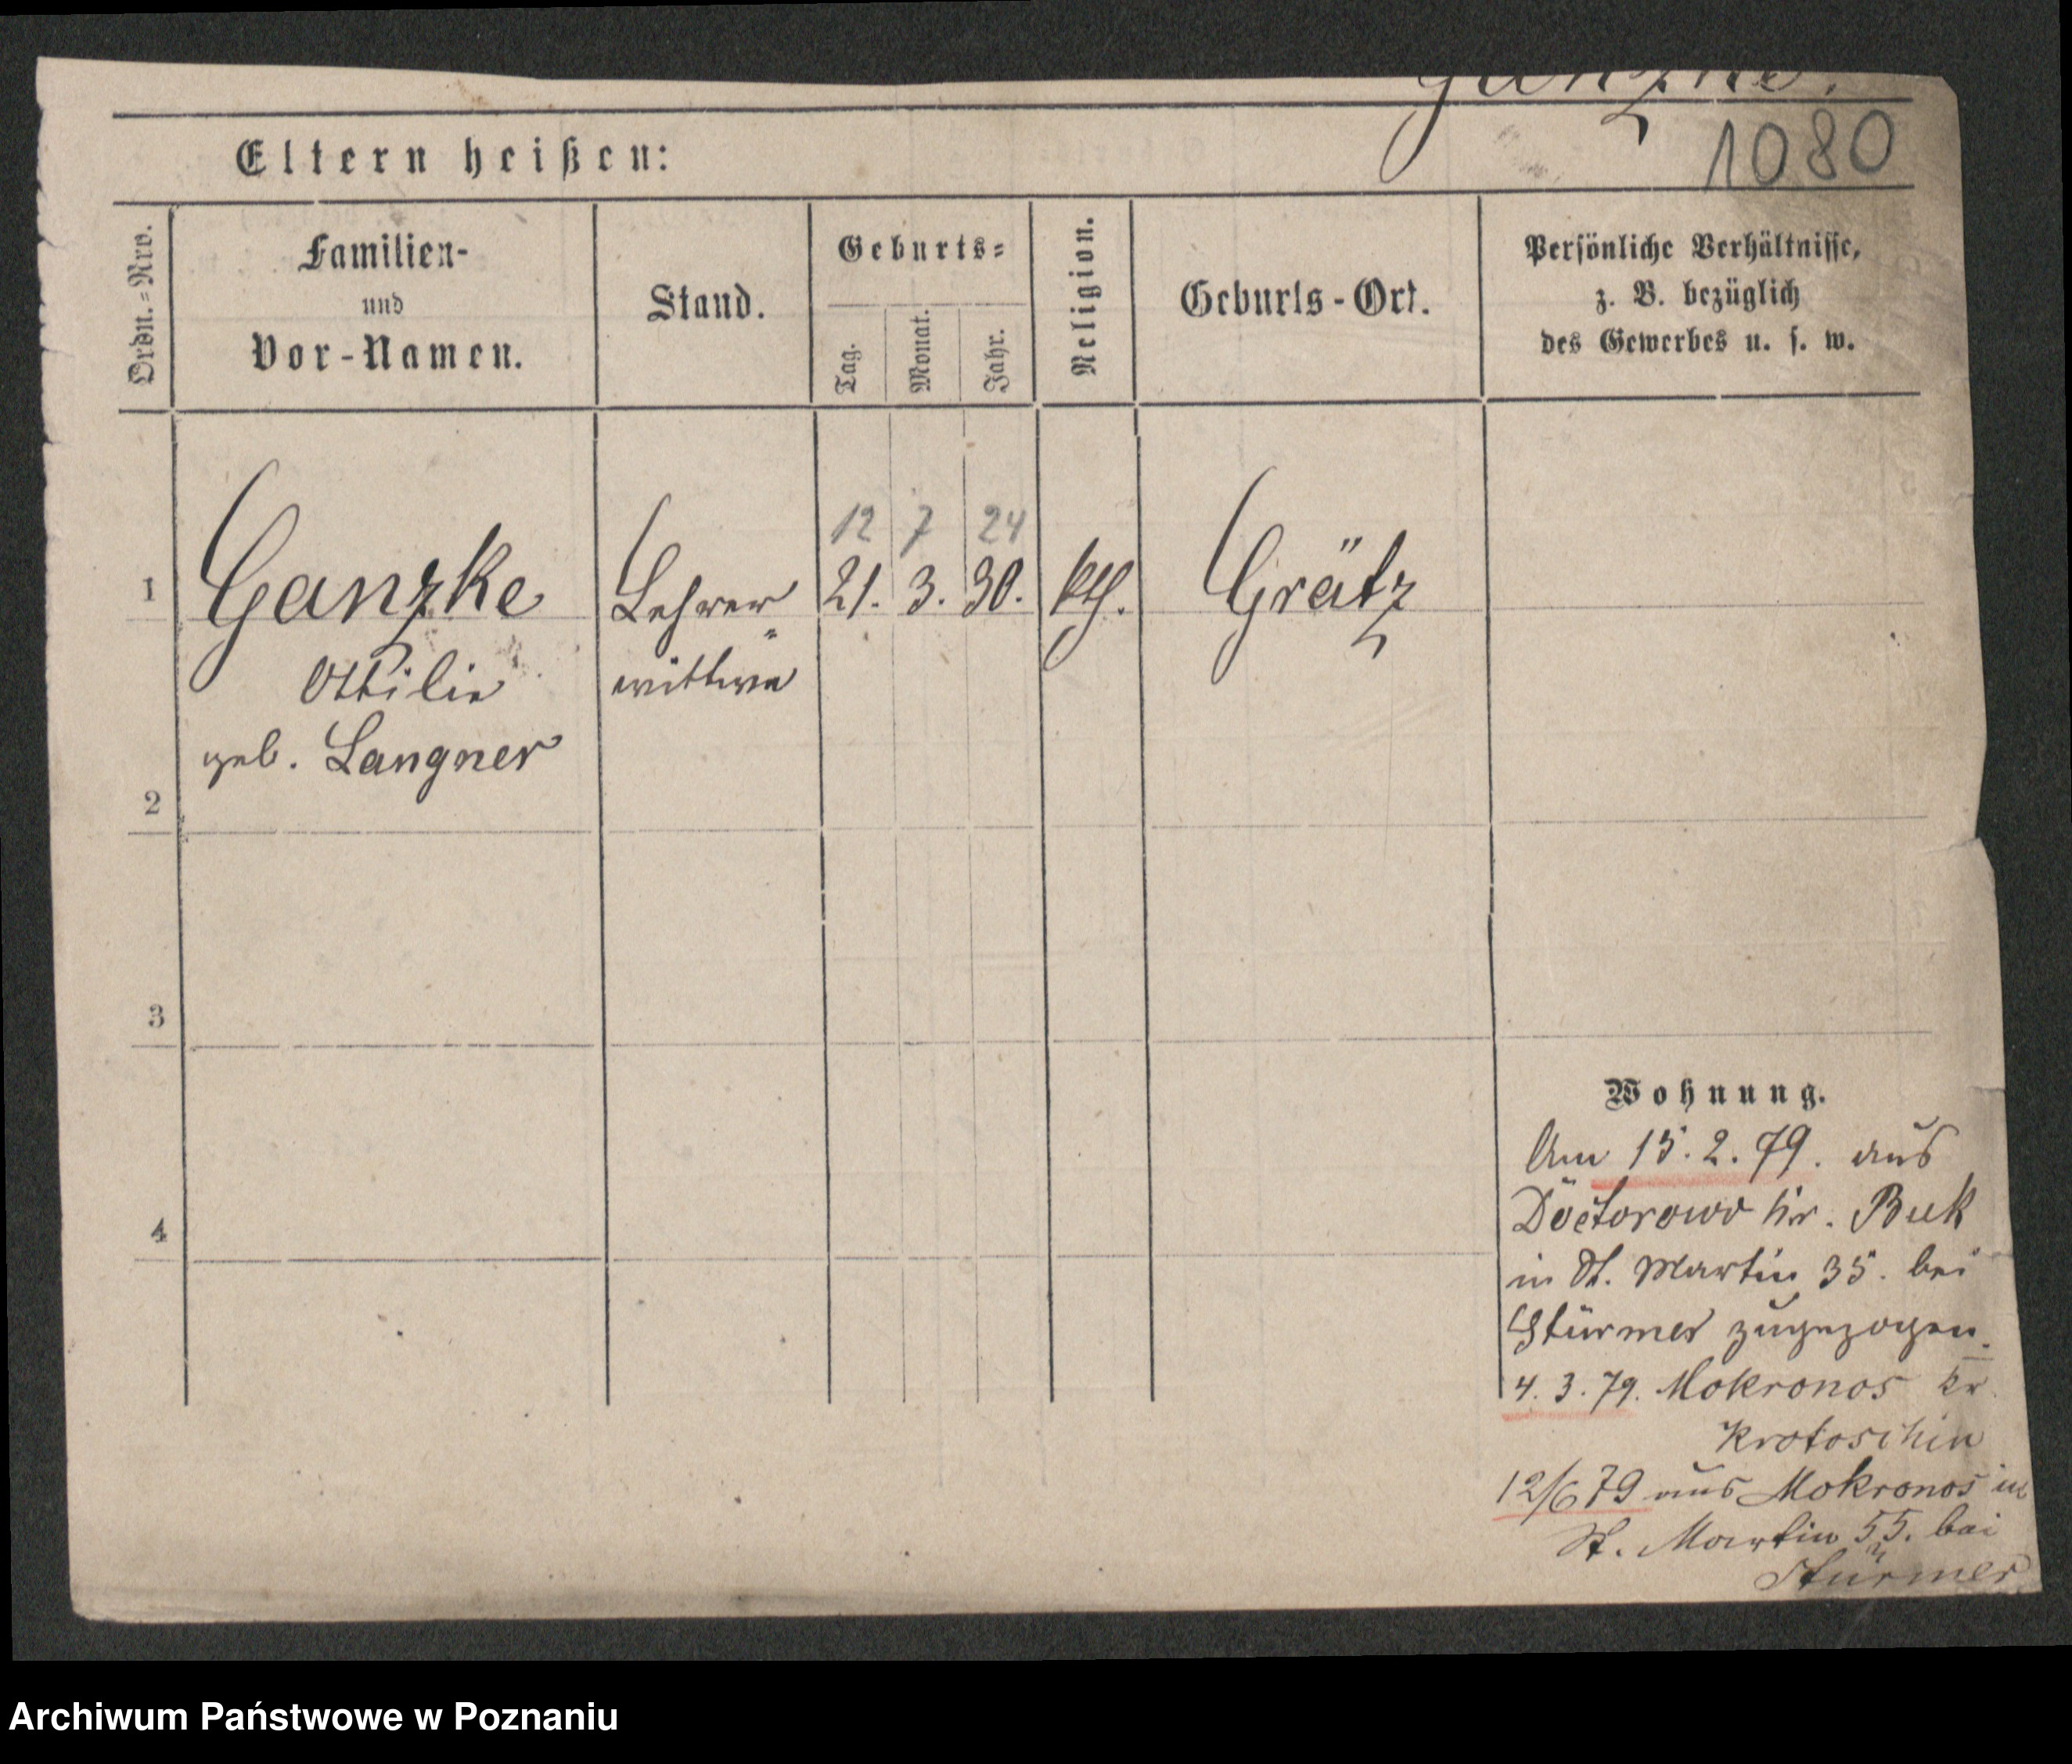 Ganzke.
1080
Eltern heißen:
Ordn.=Nro.
Familien-
und
Vor-Namen.
Stand.
Geburts=
Tag.
Monat.
Jahr.
Religion.
Geburts-Ort.
Persönliche Verhältnisse,
z. B. bezüglich
des Gewerbes u. s. w.
12 7 24
1 Ganzke Lehrer 21. 3. 30. kth. Grätz
Ottilie wittwe
geb. Langner
2
3
4
Wohnung.
Am 15. 2. 79. aus
Doctorowo Kr. Buk
in St. Martin 35. bei
Stürmer zugezogen.
4. 3. 79. Mokronos Kr
Krotoschin
12/6 79 aus Mokronos in
St. Martin 55. bei
Stürmer
Archiwum Państwowe w Poznaniu